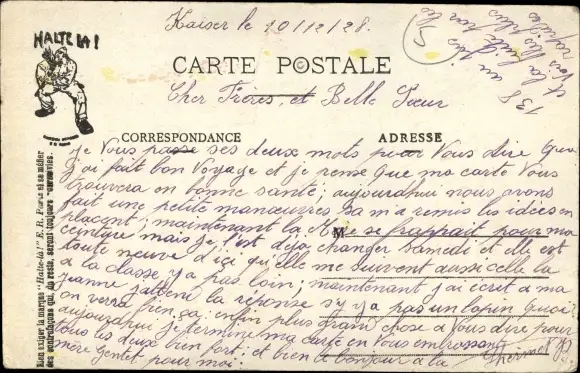 Kaiser le 10/12/28.
5
HALTE LÀ !
CARTE POSTALE
Cher Frères, et Belle Sœur
CORRESPONDANCE
ADRESSE
je vous passe ses deux mots pour Vous dire que
j'ai fait bon Voyage et je pense que ma carte Vous
trouvera en bonne santé; aujourdhui nous avons
fait une petite manœuvres sa m'a remis les idées en
placent; maintenant la se frappait pour ma
ceinture mais je l'est deja changer samedi et elle est
toute neuve d'ici qu'elle me suivent aussi celle la
a la classe y'a pas loin; maintenant j'ai écrit a ma
jeanne j'attend la réponse s'y y'a pas un lapin quoi
on verra bien, sa enfin plus grand chose a Vous dire pour
aujourdhui je termine ma carte en Vous embrassant
tous les deux bien fort; et bien le bonjour a la
mère Gentet pour moi.
Bien exiger la marque "Halte-là !" E. R. Paris et se méfier
des contrefaçons qui, du reste, seront toujours